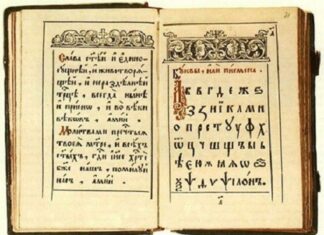 Слава ст҃ѣй и едино
сꙋщнѣй, и животворѧ
щей, и нераздѣлнѣй
трⷪ҇цѣ, всегда нынѣ
и приснѡ, и во вѣки
вѣкѡмъ, аминь
Молитвами пречⷭ҇тыѧ
своеѧ мт҃ре, и всѣхъ
ст҃ыхъ, гдⷭ҇и їисе хрⷭ҇те
бж҃е нашъ, помилꙋй
насъ, аминь
Бꙋквы
а б в г д е ж ѕ
з и і к л м н
о п р с т ꙋ ф х
ц ч ш щ ъ ы ь
ѣ ю ѧ ѡ
ѯ ѱ